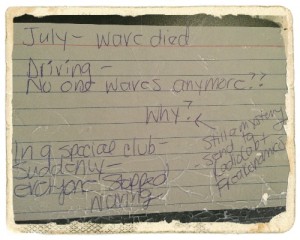 July - wave died
Driving -
No one waves anymore??
Why?
Still a mystery
Send to
Radiolab?
Freakonomics
In a special club -
Suddenly -
everyone stopped